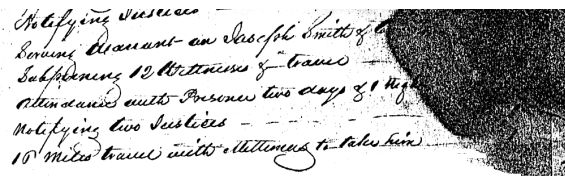 Notifying Justices
Serving Warrant on Joseph Smith &
Subpoening 12 Wittnesses & travel
Attendance with Prisoner two days & 1 Nigh
Notifying two Justices
10 miles travel with Mittimus to take him